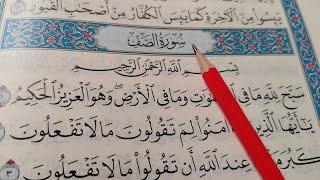 يَئِسُوا مِنَ الْآخِرَةِ كَمَا يَئِسَ الْكُفَّارُ مِنْ أَصْحَابِ الْقُبُورِ
سُورَةُ الصَّفِّ
بِسْمِ اللَّهِ الرَّحْمَٰنِ الرَّحِيمِ
سَبَّحَ لِلَّهِ مَا فِي السَّمَٰوَٰتِ وَمَا فِي الْأَرْضِ ۖ وَهُوَ الْعَزِيزُ الْحَكِيمُ
يَٰٓأَيُّهَا الَّذِينَ ءَامَنُوا لِمَ تَقُولُونَ مَا لَا تَفْعَلُونَ
كَبُرَ عِندَ اللَّهِ أَن تَقُولُوا مَا لَا تَفْعَلُونَ ٣